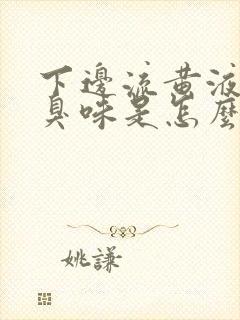 下邊流黃液
臭味是怎麼
姚謙